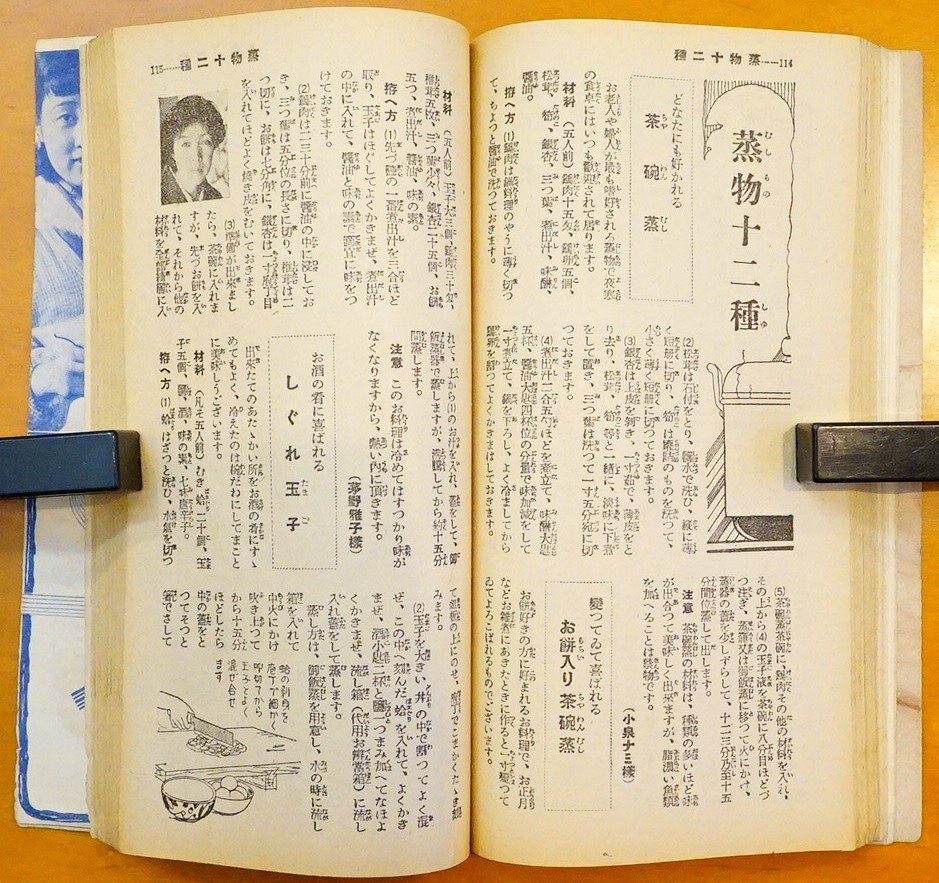 114……蒸物十二種
蒸物十二種
むしものしゆ
どなたにも好かれる
茶碗蒸
ちやわんむし
お老人や婦人が最も嗜好される蒸物で夜寒
の食卓にはいつも歓迎されて居ります。
材料(五人前)鶏肉十五匁、鶏卵五個、
松茸、筍、銀杏、三つ葉、煮出汁、味醂、
醤油。
拵へ方 (1)鶏肉は鍋料理のやうに薄く切つ
て、ちよつと醤油で洗つておきます。
(2)松茸は石付をとり、鹽水で洗ひ、縦に薄
く短冊に切り、筍は罐詰のものを洗つて、
小さく薄く短冊に切つておきます。
(3)銀杏は上皮を剥き、一寸茹で、薄皮をと
り去り、松茸、筍等と一緒に、淡味に下煮
をして置き、三つ葉は洗つて一寸五分宛に切
つておきます。
(4)煮出汁二合五勺ほどを煮立て、味醂大匙
五杯、醤油大匙四杯位の分量で味加減をして
一寸煮立て、鍋を下ろし、よく冷ましてから
鶏卵を割つてよくかきまはしておきます。
(5)茶碗蒸茶碗に、鶏肉その他の材料を入れ、
その上から(4)の玉子液を茶碗に八分目ほどづ
つ注ぎ、蒸籠又は御飯蒸に移つて火にかけ、
蒸器の蓋を少しずらして、十二三分乃至十五
分間位蒸して出します。
注意 茶碗蒸の材料は、種類の多いほど味
が出合つて美味しく出来ますが、脂濃い魚類
を加へることは禁物です。
(小泉ナミ様)
變つてゐて喜ばれる
お餅入り茶碗蒸
もちいちやわんむし
お餅好きの方に好まれるお料理で、お正月
などお雑煮にあきたときに作ると一寸變つて
ゐてよろこばれるものでございます。
115……蒸物十二種
材料(五人前)玉子大三個、鶏肉三十匁、
椎茸五枚、三つ葉少々、銀杏二十五個、お餅
五つ、煮出汁、醤油、味の素。
拵へ方 (1)先づ鰹の一番煮出汁を三合ほど
取り、玉子はほぐしてよくかきまぜ、煮出汁
の中に入れて、醤油と味の素で適宜に味をつ
けておきます。
(2)鶏肉は二三十分前に醤油の中に浸してお
き、三つ葉は五分位の長さに切り、椎茸は二
つ切に、お餅は七分角に、銀杏は一寸庖丁目
を入れてほどよく焼き皮をむいておきます。
(3)準備が出来まし
たら、茶碗に入れま
すが、先づお餅を入
れて、それから他の
材料を茶碗に入
れて、上から(1)のお汁を入れ、蓋をして、御
飯蒸器で蒸しますが、沸騰してから約十五分
間蒸します。
注意 このお料理は冷めてはすつかり味が
なくなりますから、熱い内に頂きます。
(茅野雅子様)
お酒の肴に喜ばれる
しぐれ玉子
たまご
出來たてのあたゝかい所をお酒の肴にすゝ
めてもよく、冷えたのは椀だねにしてまこと
に美味しうございます。
材料(凡そ五人前)むき蛤二十個、玉
子五個、鹽、酒、味の素、七味唐辛子。
拵へ方 (1)蛤はざつと洗ひ、水氣を切つ
て俎板の上にのせ、庖丁でこまかくたゝき刻
みます。
(2)玉子を大きい丼の中で割つてよく混
ぜ、この中へ刻んだ蛤を入れて、よくかき
まぜ、酒小匙二杯と鹽一つまみ加へてなほよ
くかきまぜ、流し箱(代用お辨當箱)に流し
入れ蓋をして蒸します。
蒸し方は、御飯蒸を用意し、水の時に流し
箱を入れて
中火にかけ
吹き上つて
から十五分
ほどしたら
中の蓋をと
つてそつと
箸でさして
蛤の剥身を
庖丁で細かく
叩切つてから
玉子とよく
混ぜ合せ
ます